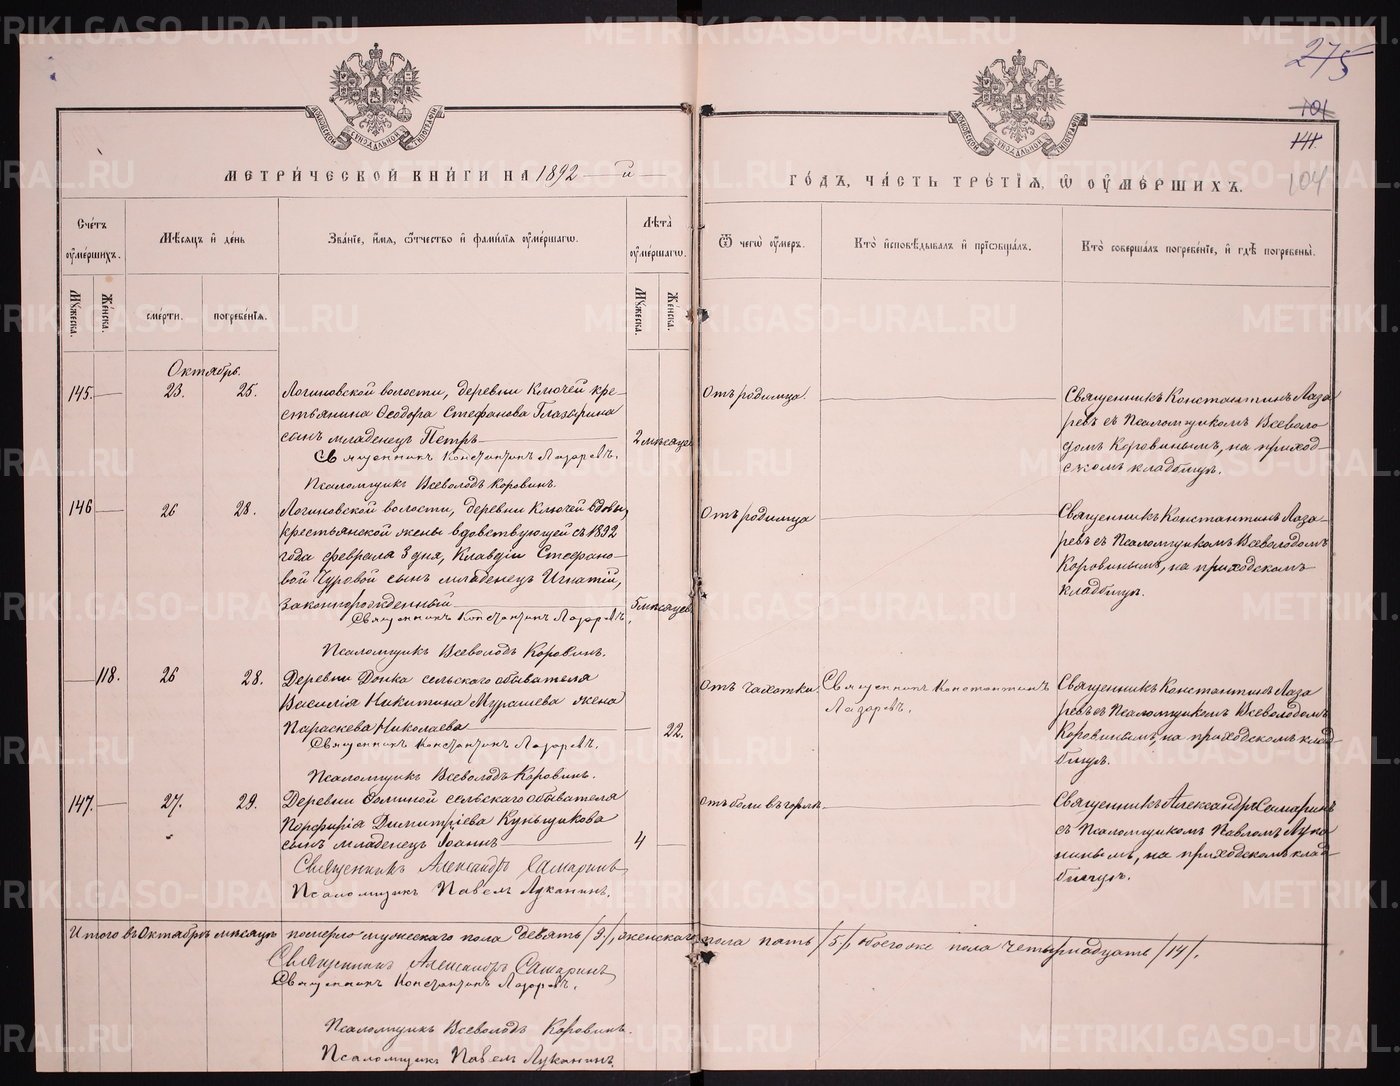 275
101
111
104
МОСКОВСКОЙ СѴНОДАЛЬНОЙ ТИПОГРАФІИ
МОСКОВСКОЙ СѴНОДАЛЬНОЙ ТИПОГРАФІИ
МЕТРИ́ЧЕСКОЙ КНИ́ГИ НА 1892 — й —
ГО́ДЪ, ЧА́СТЬ ТРЕ́ТІЯ, Ѡ ОУМЕ́РШИХЪ.
Сче́тъ оуме́ршихъ.
Мꙋ́жеска.
Же́нска.
Мѣ́сяцъ и де́нь
сме́рти.
погребе́нія.
Зва́ніе, и́мя, ѻ́тчество и фами́лія оуме́ршагѡ.
Лѣта̀ оуме́ршагѡ.
Мꙋ́жеска.
Же́нска.
Ѿ чегѡ̀ оу́меръ.
Кто̀ и҆сповѣ́дывалъ и҆ прїѡбща́лъ.
Кто̀ соверша́лъ погребе́нїе, и҆ гдѣ̀ погребены̀.
Октябрь.
145.
23.
25.
Логиновской волости, деревни Ключей кре-
стьянина Ѳеодора Стефанова Глазырина
сынъ младенецъ Петръ
2 мѣсяцевъ
Священникъ Константинъ Лазаревъ.
Псаломщикъ Всеволодъ Коровинъ.
Отъ родимца.
Священникъ Константинъ Лаза
ревъ съ Псаломщикомъ Всеволо
домъ Коровинымъ, на приход-
скомъ кладбищѣ.
146
26
28.
Логиновской волости, деревни Ключей вдовы,
крестьянской жены вдовствующей съ 1892
года февраля 3 дня, Клавдіи Стефано-
вой Чуровой сынъ младенецъ Игнатій,
законнорожденный
5 мѣсяцевъ
Священникъ Константинъ Лазаревъ.
Псаломщикъ Всеволодъ Коровинъ.
Отъ родимца
Священникъ Константинъ Лаза-
ревъ съ Псаломщикомъ Всеволодомъ
Коровинымъ, на приходскомъ
кладбищѣ.
118.
26
28.
Деревни Донка сельскаго обывателя
Василія Никитина Мурашева жена
Параскева Николаева
22.
Священникъ Константинъ Лазаревъ.
Псаломщикъ Всеволодъ Коровинъ.
Отъ чахотки.
Священникъ Константинъ
Лазаревъ.
Священникъ Константинъ Лаза
ревъ съ Псаломщикомъ Всеволодомъ
Коровинымъ, на приходскомъ клад
бищѣ.
147.
27.
29.
Деревни Соминой сельскаго обывателя
Порфирія Димитріева Куньщикова
сынъ младенецъ Іоаннъ
4
Священникъ Александръ Самаринъ
Псаломщикъ Павелъ Луканинъ.
Отъ боли въ горлѣ.
Священникъ Александръ Самаринъ
съ Псаломщикомъ Павломъ Лука
нинымъ, на приходскомъ клад
бищѣ.
Итого въ Октябрѣ мѣсяцѣ померло мужескаго пола девять /9/, женскаго пола пять /5/, обоего же пола четырнадцать /14/.
Священникъ Александръ Самаринъ
Священникъ Константинъ Лазаревъ.
Псаломщикъ Всеволодъ Коровинъ.
Псаломщикъ Павелъ Луканинъ.
METRIKI.GASO-URAL.RU